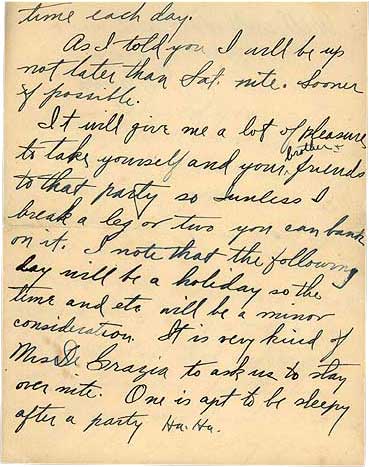 time each day.
As I told you I will be up
not later than Sat. nite. Sooner
if possible.
It will give me a lot of pleasure
brother +
to take yourself and your friends
to that party so unless I
break a leg or two you can bank
on it. I note that the following
day will be a holiday so the
time and etc will be a minor
consideration. It is very kind of
Mrs De Grazia to ask us to stay
over nite. One is apt to be sleepy
after a party Ha. Ha.